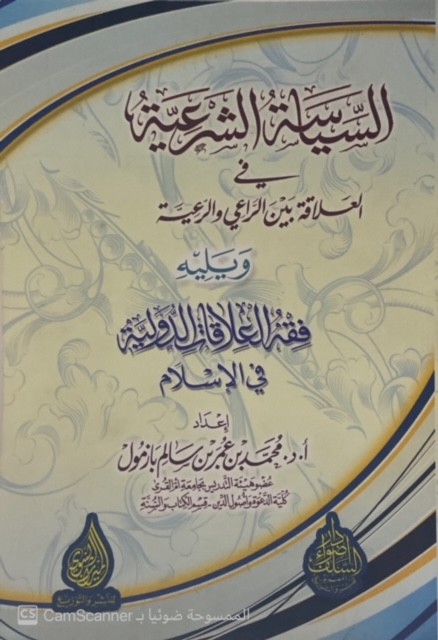 السِّيَاسَةُ الشَّرْعِيَّةُ
فِي
العلاقة بين الراعي والرعية
وَيَلِيهِ
فِقْهُ العِلاقَاتِ الدَّوليَّةِ
في الإسلام
إعداد
أ. د. محمد بن عمر بن سالم بازمول
عضو هيئة التدريس بجامعة أم القرى
كلية الدعوة وأصول الدين - قسم الكتاب والسنة
دار
أضواء
السلف
للنشر والتوزيع
CS CamScanner الممسوحة ضوئيا بـ